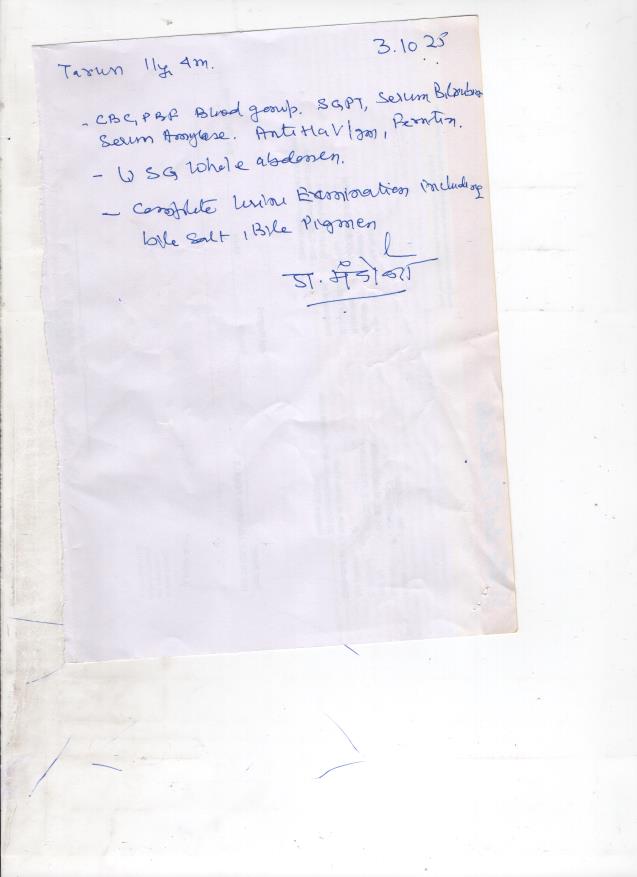 Tarun 11y 4m.
3.10.25
- CBC, PBF Blood group. SGPT, Serum Bilirubin
Serum Amylase. Anti HaV Igm, Ferritin.
- USG Whole abdomen.
- Complete Urine Examination including
bile salt, Bile Pigmen
डा.